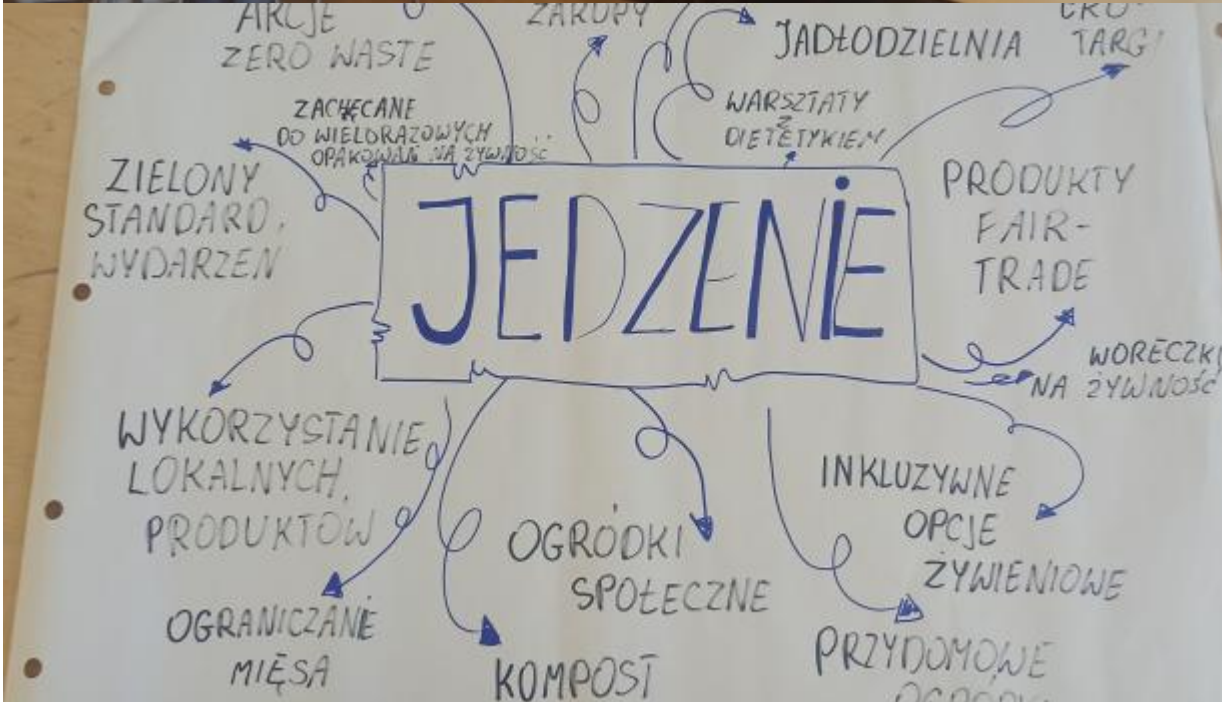 AKCJE
ZERO WASTE
ZAKUPY
JADŁODZIELNIA
TARGI
ZACHĘCANE
DO WIELORAZOWYCH
OPAKOWAŃ NA ŻYWNOŚĆ
WARSZTATY
Z
DIETETYKIEM
ZIELONY
STANDARD
WYDARZEN
JEDZENIE
PRODUKTY
FAIR-
TRADE
WORECZKI
NA ŻYWNOŚĆ
WYKORZYSTANIE
LOKALNYCH
PRODUKTÓW
OGRANICZANIE
MIĘSA
KOMPOST
OGRÓDKI
SPOŁECZNE
INKLUZYWNE
OPCJE
ŻYWIENIOWE
PRZYDOMOWE